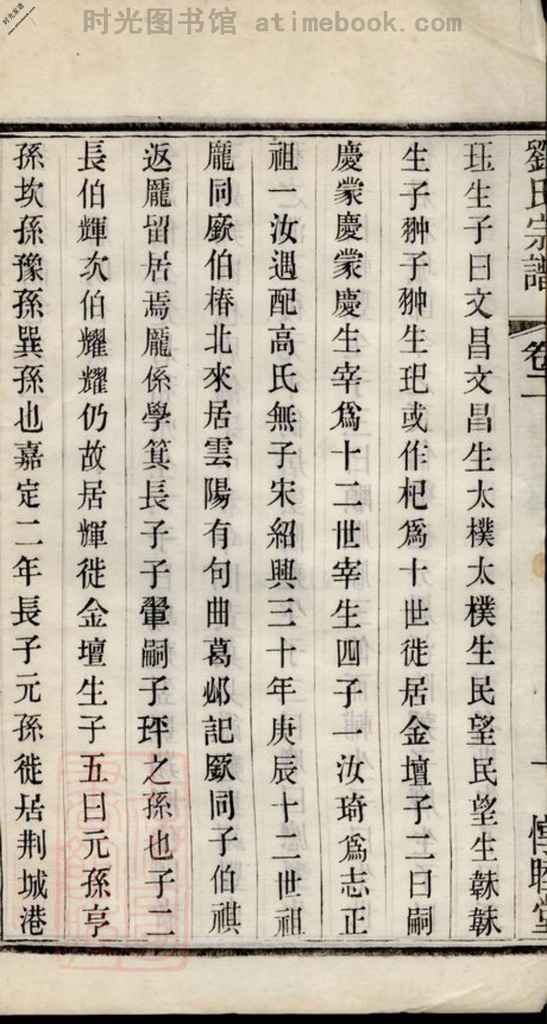 时光图书馆 atimebook.com
劉氏宗譜 卷二 一 惇睦堂
珏生子曰文昌文昌生太樸太樸生民望民望生韎韎
生子翀子翀生玘或作杞爲十世徙居金壇子二曰嗣
慶蒙慶蒙慶生宰爲十二世宰生四子一汝琦爲志正
祖一汝遇配高氏無子宋紹興三十年庚辰十二世祖
龐同厥伯椿北來居雲陽有句曲葛邲記厥同子伯祺
返龐留居焉龐係學箕長子子翬嗣子玶之孫也子二
長伯輝次伯耀耀仍故居輝徙金壇生子五曰元孫亨
孫坎孫豫孫巽孫也嘉定二年長子元孫徙居荆城港